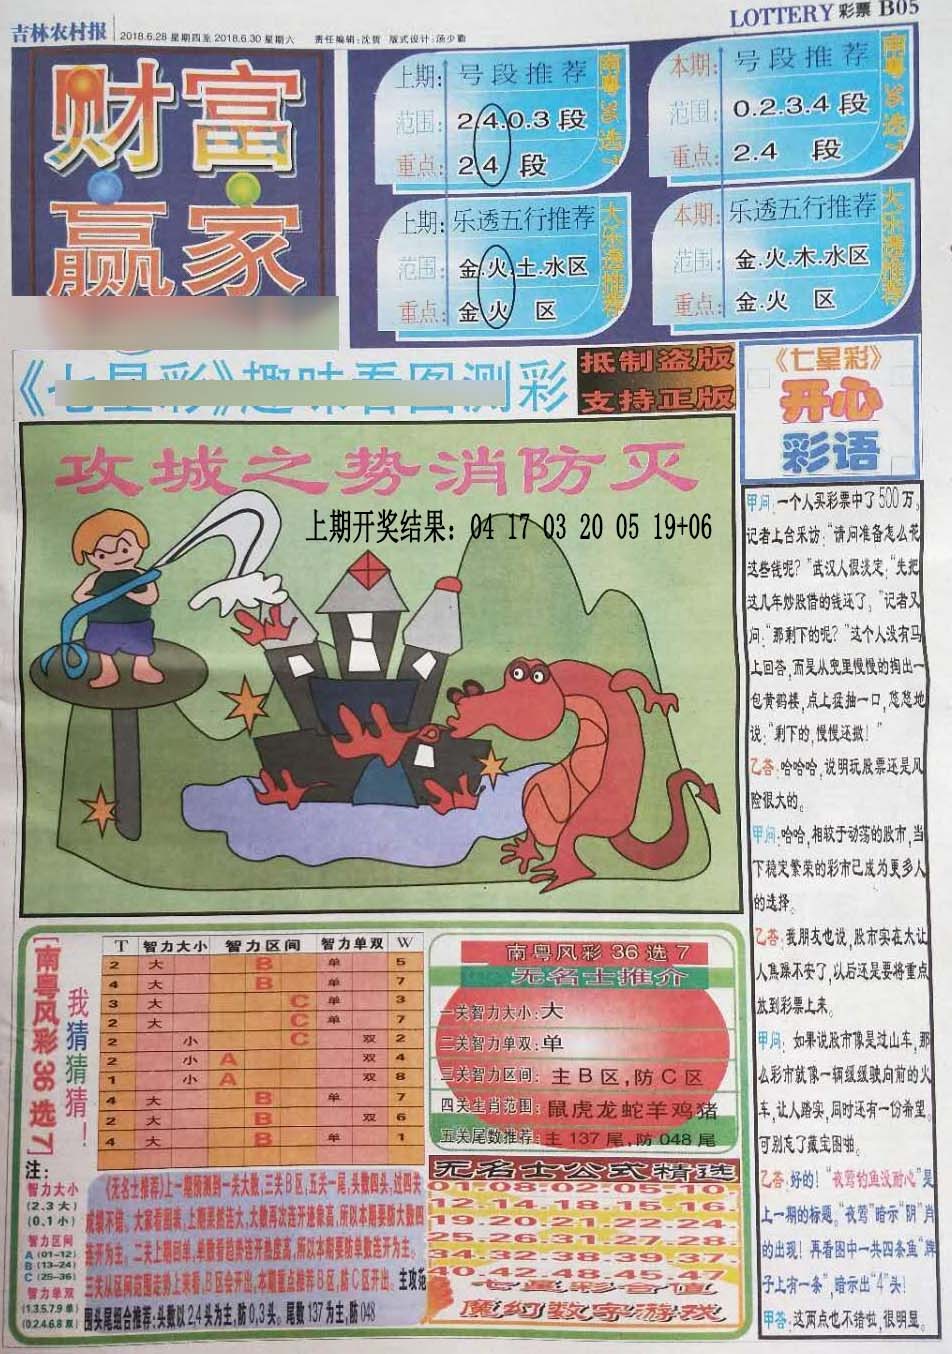 吉林农村报
2018.6.28 星期四至 2018.6.30 星期六 责任编辑:沈贺 版式设计:汤少勤
LOTTERY 彩票 B05
财富
赢家
上期: 号段推荐
范围: 2.4.0.3 段
重点: 2.4 段
南粤36选7
本期: 号段推荐
范围: 0.2.3.4 段
重点: 2.4 段
南粤36选7
上期: 乐透五行推荐
范围: 金.火.土.水区
重点: 金.火 区
大乐透推荐
本期: 乐透五行推荐
范围: 金.火.木.水区
重点: 金.火 区
大乐透推荐
《七星彩》趣味看图测彩
抵制盗版
支持正版
攻城之势消防灭
上期开奖结果: 04 17 03 20 05 19+06
《七星彩》
开心
彩语
甲问:一个人买彩票中了500万,
记者上台采访:“请问准备怎么花
这些钱呢?”武汉人很淡定:“先把
这几年炒股借的钱还了,”记者又
问:“那剩下的呢?”这个人没有马
上回答,而是从兜里慢慢的掏出一
包黄鹤楼,点上猛抽一口,悠悠地
说:“剩下的,慢慢还撒!”
乙答:哈哈哈,说明玩股票还是风
险很大的。
甲问:哈哈,相较于动荡的股市,当
下稳定繁荣的彩市已成为更多人
的选择。
乙答:我朋友也说,股市实在太让
人焦躁不安了,以后还是要将重点
放到彩票上来。
甲问:如果说股市像是过山车,那
么彩市就像一辆缓缓驶向前的火
车,让人踏实,同时还有一份希望。
可别忘了藏宝图啦。
乙答:好的!“夜莺钓鱼没耐心”是
上一期的标题。“夜莺”暗示“阴”肖
的出现!再看图中一共四条鱼“牌
子上有一条”,暗示出“4”头!
甲答:这两点也不错啦,很明显。
[南粤风彩36选7]
我猜猜猜!
注:
智力大小
(2.3 大)
(0.1 小)
智力区间
A (01—12)
B (13—24)
C (25—36)
智力单双
(1.3.5.7.9 单)
(0.2.4.6.8 双)
T 智力大小 智力区间 智力单双 W
2 大 B 单 5
4 大 B 单 7
3 大 C 单 3
2 大 C 单 7
2 小 C 双 2
2 小 A 双 4
1 小 A 双 8
4 大 B 单 7
2 大 B 双 6
4 大 B 单 1
《无名士推荐》上一期预测到一关大数,三关B区,五关一尾,头数四头,过四关
成绩不错。大家看图表,上期果然连大,大数再次连开迹象高,所以本期要防大数四
连开为主。二关上期回单,单数看趋势连开热度高,所以本期要防单数连开为主。
三关从区间范围走势上来看,B区会开出,本期重点推荐B区,防C区开出。主攻范
围头尾组合推荐:头数以2,4头为主,防0,3头。尾数137为主,防048
南粤风彩36选7
无名士推介
一关智力大小: 大
二关智力单双: 单
三关智力区间: 主B区,防C区
四关生肖范围: 鼠虎龙蛇羊鸡猪
五关尾数推荐: 主137尾,防048尾
无名士公式精选
01-08-02-05-10-
12-14-18-15-16-
19-20-21-22-24-
25-26-31-27-28-
34-32-38-39-37-
40-42-48-45-47
七星彩合值
魔幻数字游戏